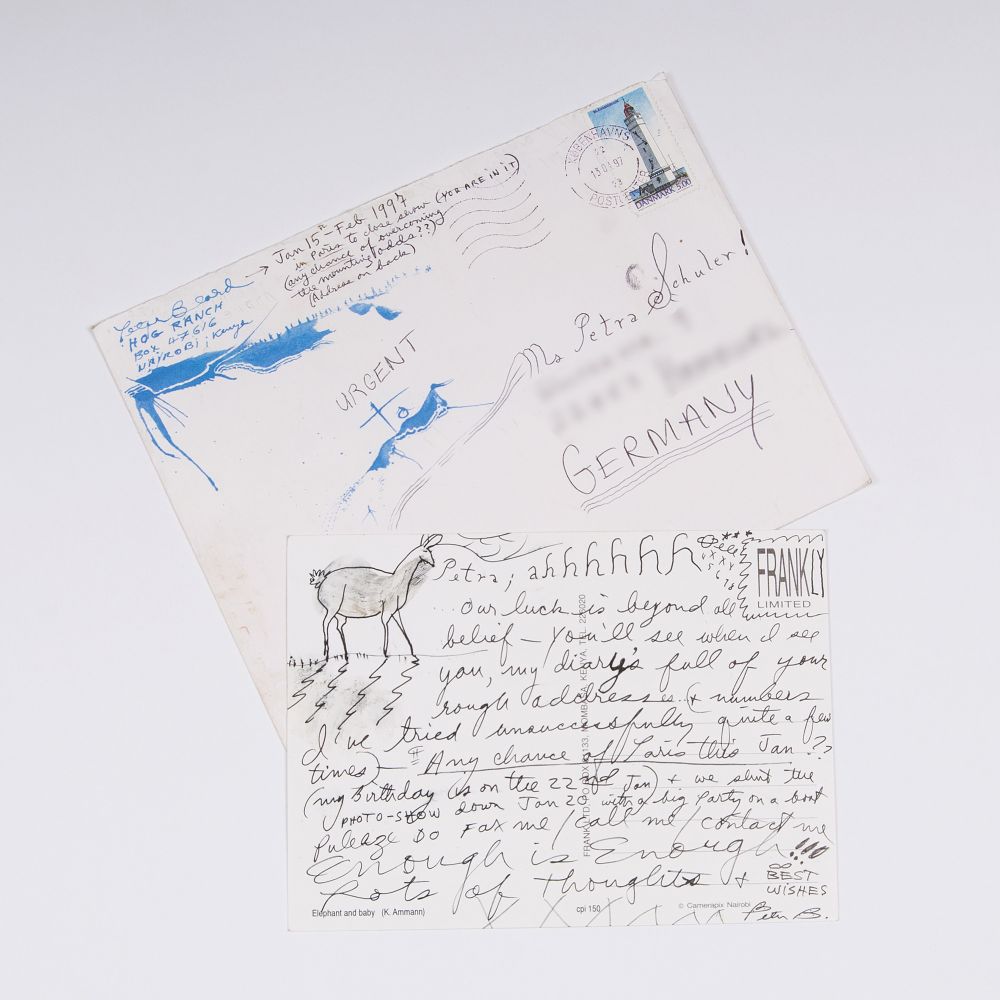 KØBENHAVNS
22
13.01.97
23
POSTCENTER
DANMARK 5.00
→ Jan 15th - Feb 1997
in Paris to close show (YOU ARE IN IT)
(any chance of overcoming
the mounting odds??)
(Address on back)
Peter Beard
HOG RANCH
Box 47616
NAIROBI, Kenya
URGENT
Ms Petra Schuler!
GERMANY
Petra, ahhhhhhh
FRANKLY
LIMITED
...our luck is beyond all
belief — You'll see when I see
you, my diary's full of your
rough addresses.. (& numbers
I've tried unsuccessfully quite a few
times) — Any chance of Paris this Jan??
(my Birthday is on the 22nd Jan) & we shut the
PHOTO-SHOW down Jan 20 with a big Party on a boat
Puleaze DO FAX me / Call me / contact me
Enough is Enough!!!!
Lots of Thoughts &
∞
BEST
WISHES
Peter B.
FRANKLY LTD. PO BOX MOMBASA, KENYA. TEL. 226020
Elephant and baby (K. Ammann)
cpi 150
© Camerapix Nairobi